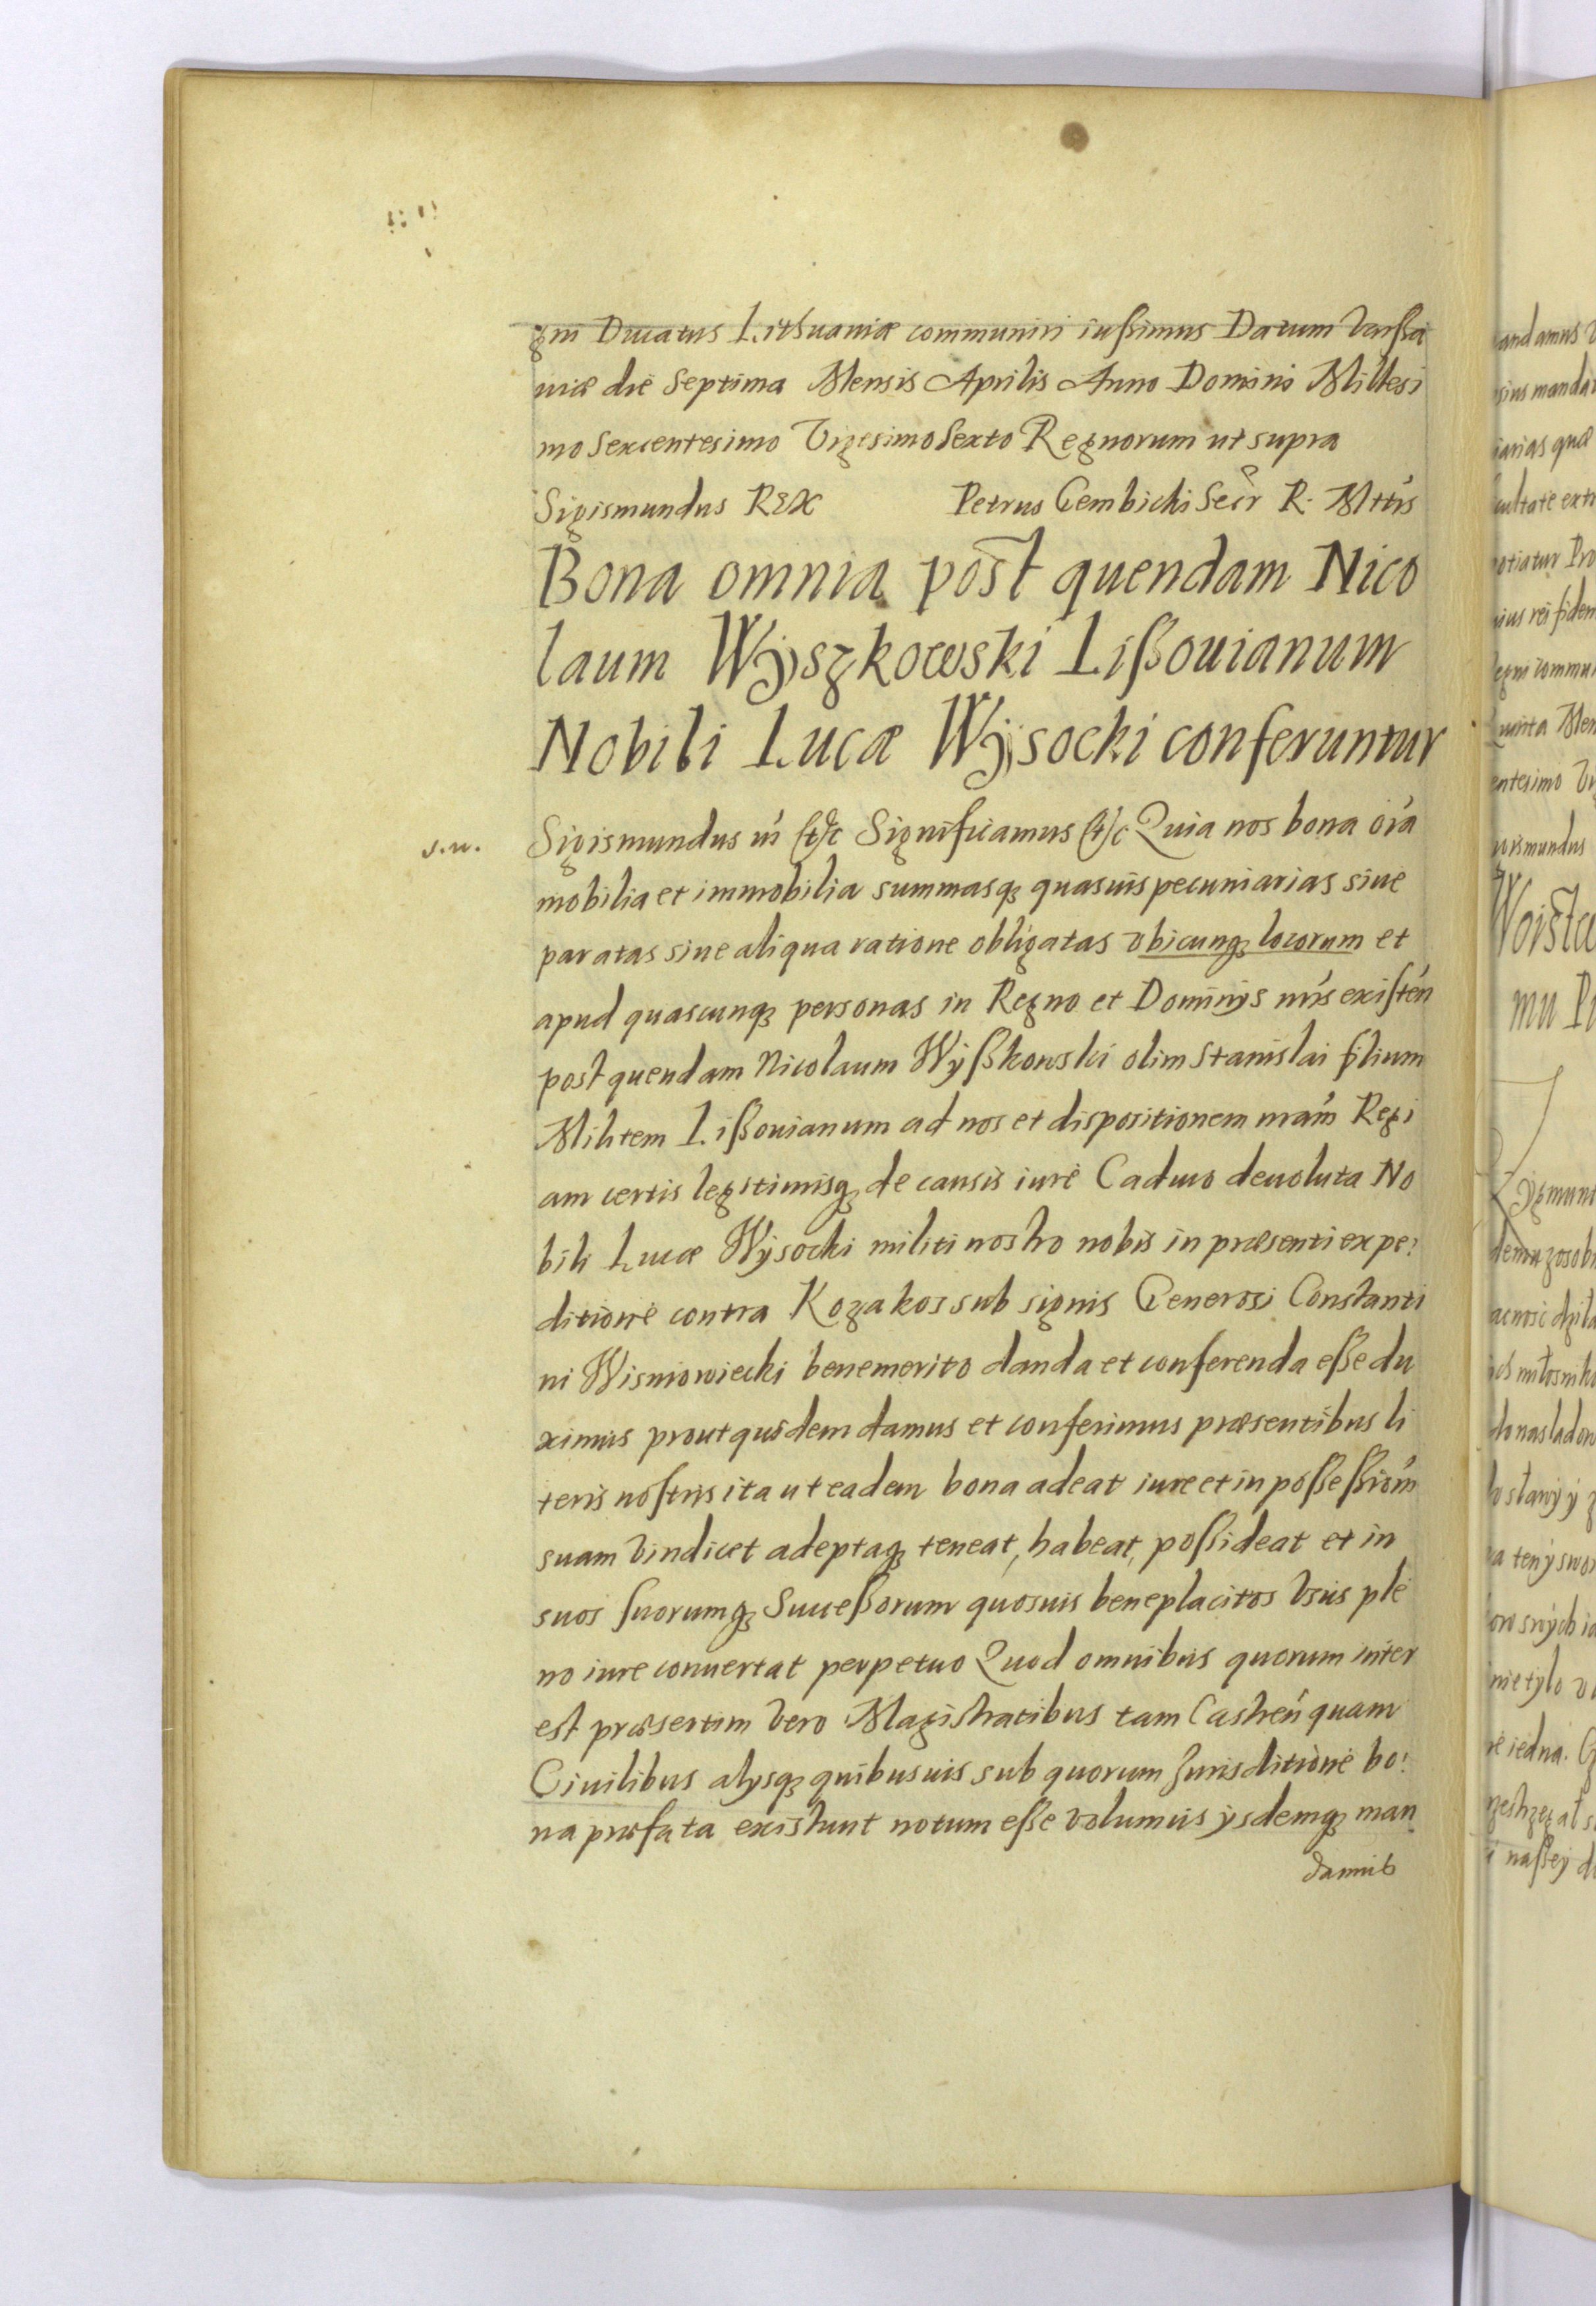 gni Ducatus Lithuaniæ communiri iussimus Datum Varssa
uiæ die Septima Mensis Aprilis Anno Domini Millesi
mo Sexcentesimo Vigesimo Sexto Regnorum ut supra
Sigismundus REX Petrus Gembicki Secr R. Mttis
Bona omnia post quendam Nico
laum Wÿszkowski Lissouianum
Nobili Lucæ Wÿsocki conferuntur
Sigismundus iii etc Significamus etc Quia nos bona oia
mobilia et immobilia summasq quasuis pecuniarias siue
paratas siue aliqua ratione obligatas vbicunq locorum et
apud quascunq personas in Regno et Dominijs nris existen
post quendam Nicolaum Wÿsskowski olim Stanislai filium
Militem Lissouianum ad nos et dispositionem nram Regi
am certis legitimisq de causis iure Caduco deuoluta No
bili Lucæ Wÿsocki militi nostro nobis in præsenti expe:
ditione contra Kozakos sub signis Generosi Constanti
ni Wisniowiecki benemerito danda et conferenda esse du
ximus prout quidem damus et conferimus præsentibus li
teris nostris ita ut eadem bona adeat iure et in possessiom
suam vindicet adeptaq teneat, habeat, possideat et in
suos suorumq Successorum quosuis beneplacitos vsus ple
no iure conuertat perpetuo Quod omnibus quorum inter
est præsertim vero Magistratibus tam Castren quam
Ciuilibus alijsq quibusuis sub quorum Jurisditione bo:
na præfata existunt notum esse volumus ijsdemq man
damus